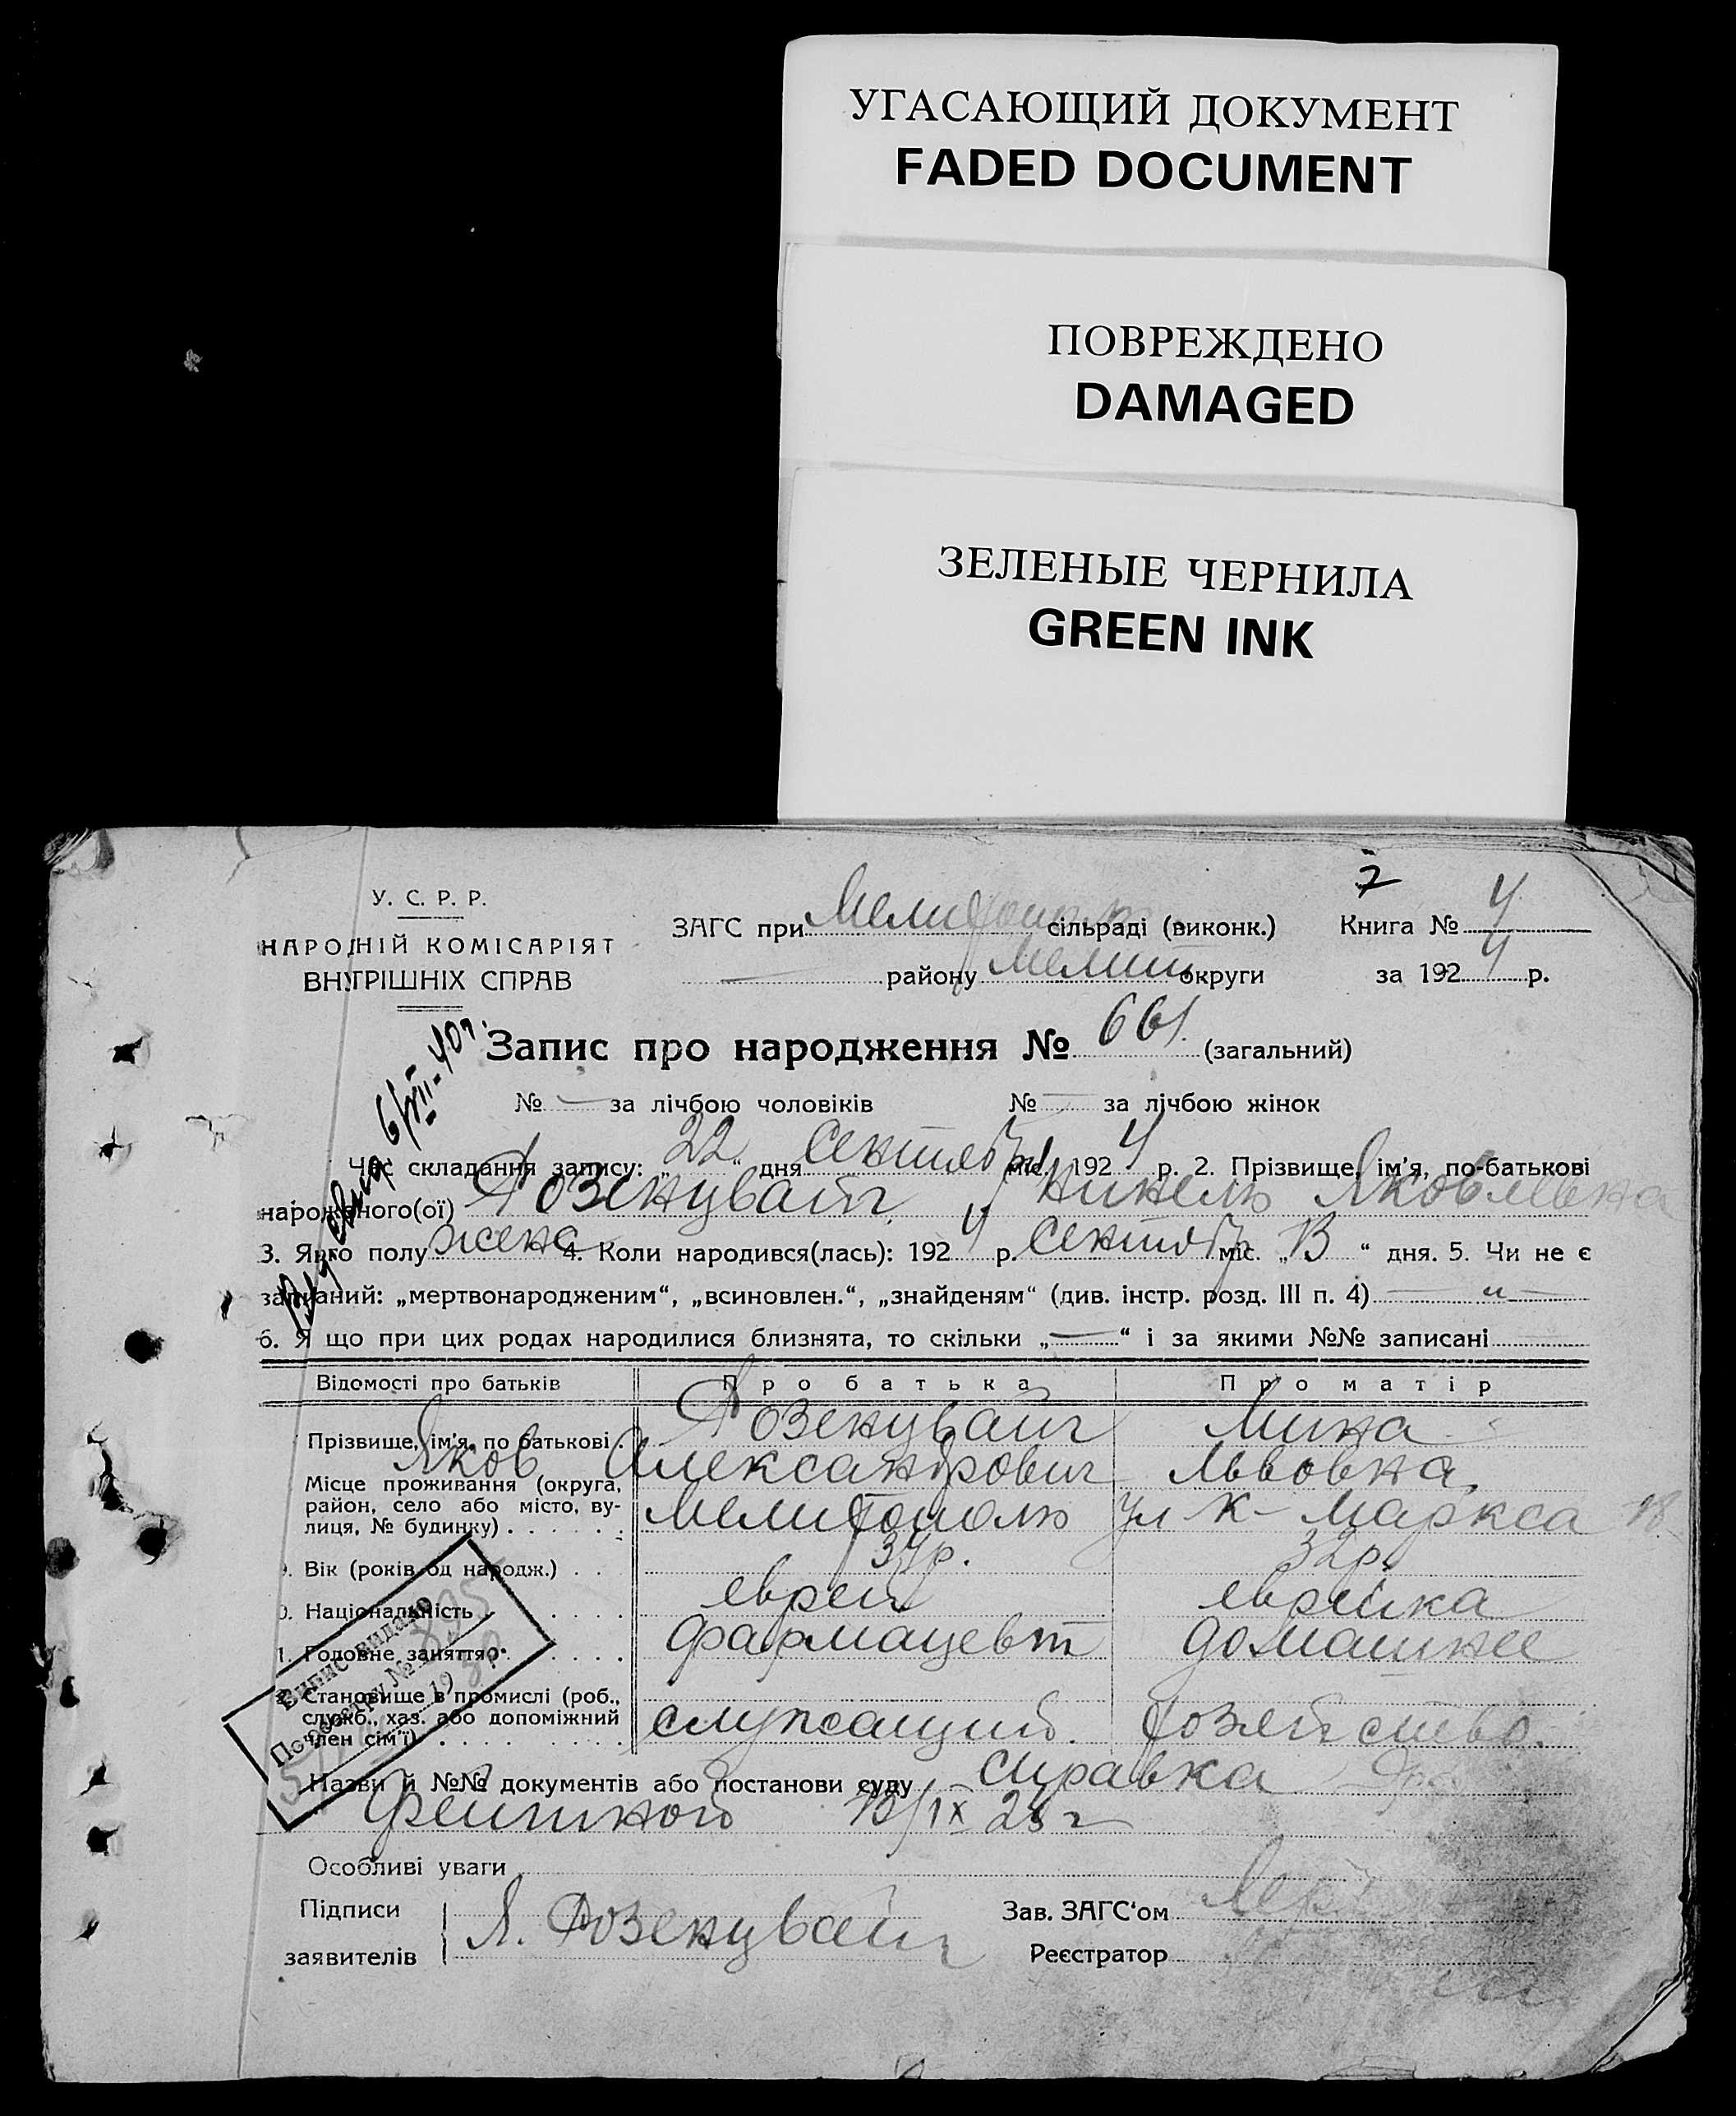 УГАСАЮЩИЙ ДОКУМЕНТ
FADED DOCUMENT
ПОВРЕЖДЕНО
DAMAGED
ЗЕЛЕНЫЕ ЧЕРНИЛА
GREEN INK
7
У. С. Р. Р.
НАРОДНІЙ КОМІСАРІЯТ
ВНУТРІШНІХ СПРАВ
ЗАГС при сільраді (виконк.) Книга № 4
району Мелит округи за 1924 р.
Запис про народження № 661. (загальний)
№ — за лічбою чоловіків № — за лічбою жінок
Час складання запису: „22“ дня Сентяб міс. 1924 р. 2. Прізвище, ім’я, по-батькові
народженого(ої) Розенцвайг Нинель Яковлевна
3. Якого полу жена 4. Коли народився(лась): 1924 р. Сентяб міс. „13“ дня. 5. Чи не є
записаний: „мертвонародженим“, „всиновлен.“, „знайденям“ (див. інстр. розд. III п. 4) — „ —
6. Якщо при цих родах народилися близнята, то скільки „—“ і за якими №№ записані
6/VII-40г.
Відомості про батьків Про батька Про матір
Прізвище, ім’я, по батькові. Розенцвайг Мина
Яков Александрович Львовна
Місце проживання (округа,
район, село або місто, ву-
лиця, № будинку) Мелитополь ул К-Маркса 18
9. Вік (років од народж.) 34р. 32р.
10. Національність еврей еврейка
11. Головне заняття фармацевт домашнее
Становище в промислі (роб.,
служб., хаз. або допоміжний
член сім’ї) служащий. хозяйство.
Випис видано
По реєстру № 895
19
Назви й №№ документів або постанови суду справка
Фейгиной /IX 24 г
Особливі уваги
Підписи
заявителів Я. Розенцвайг
Зав. ЗАГС‘ом
Реєстратор